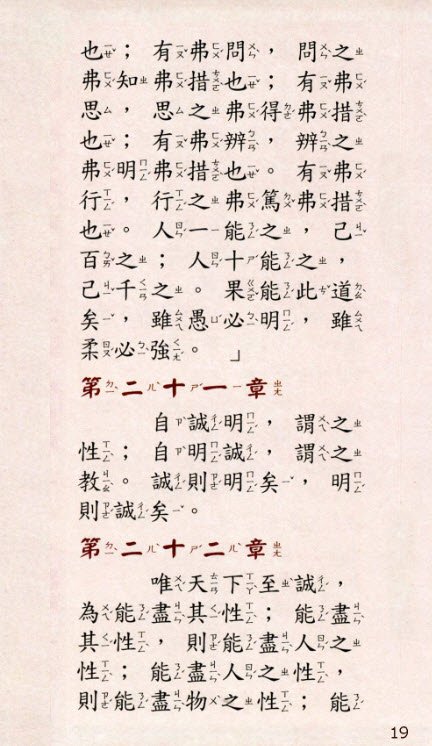 也；有弗問，問之
弗知弗措也；有弗
思，思之弗得弗措
也；有弗辨，辨之
弗明弗措也。有弗
行，行之弗篤弗措
也。人一能之，己
百之；人十能之，
己千之。果能此道
矣，雖愚必明，雖
柔必強。」
第二十一章
自誠明，謂之
性；自明誠，謂之
教。誠則明矣，明
則誠矣。
第二十二章
唯天下至誠，
為能盡其性；能盡
其性，則能盡人之
性；能盡人之性，
則能盡物之性；能
19